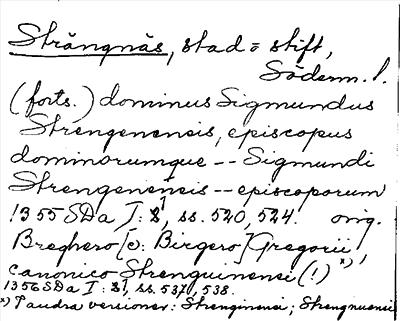 Strängnäs, stad o stift,
Söderm. l.
(forts.) dominus Sigmundus
Strengenensis, episcopus
dominorumque -- Sigmundi
Strengenensis -- episcoporum
1355 SDa I: 1, ss. 520, 524. orig.
Breghero [ɔ: Birgero] Gregorii,
canonico Strenguinensi (!) *),
1356 SDa I: 1, ss. 537, 538.
*) I andra versioner: Strenginensi; Strengnuensi